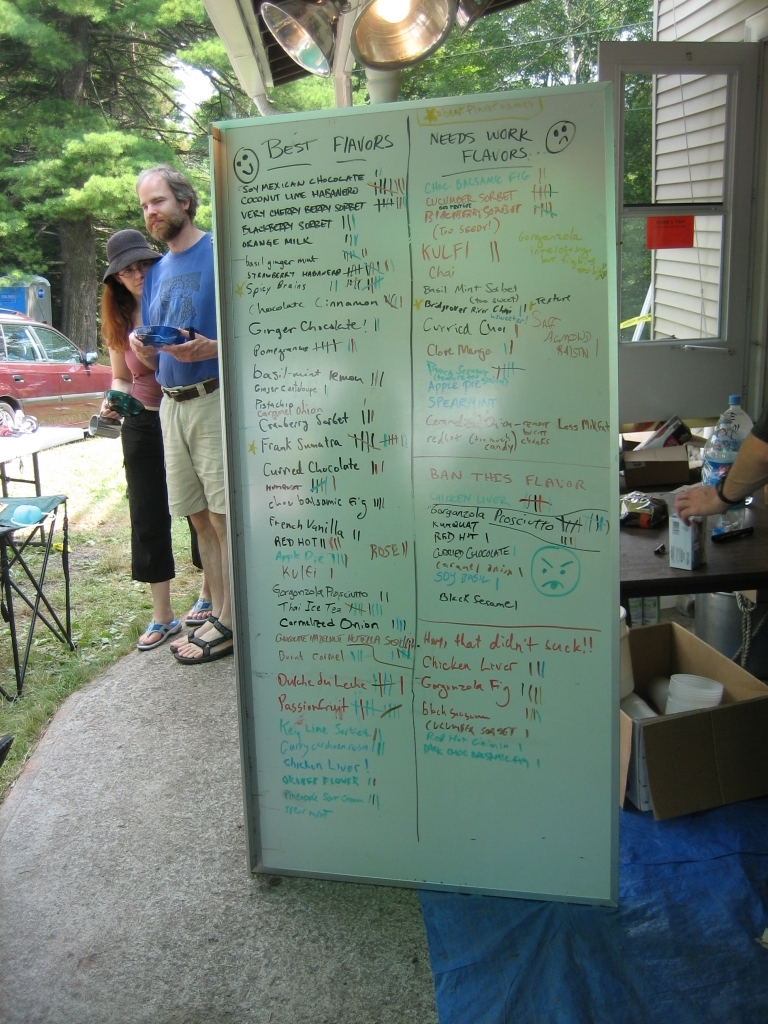 BEST FLAVORS
SOY MEXICAN CHOCOLATE
COCONUT LIME HABANERO
VERY CHERRY BERRY SORBET
BLACKBERRY SORBET
ORANGE MILK
basil ginger mint
STRAWBERRY HABANERO
Spicy Brains
Chocolate Cinnamon
Ginger Chocolate!
Pomegranate
basil-mint lemon
Ginger Cantaloupe
Pistachio
Caramel onion
Cranberry Sorbet
Frank Sumatra
Curried Chocolate
KUMQUAT
choc balsamic fig
French Vanilla
RED HOT
ROSE
Apple Pie
Kulfi
Gorgonzola Prosciutto
Thai Ice Tea
Carmelized Onion
CHOCOLATE HAZELNUT NUTELLA
Burnt Carmel
Dulche du Leche
Passionfruit
Key Lime Sorbet
Chicken Liver!
ORANGE FLOWER
Pineapple Sour Cream
Spearmint
NEEDS WORK
FLAVORS...
CHOC BALSAMIC FIG
CUCUMBER SORBET
BLACKBERRY SORBET
(TOO SEEDY!)
Gorgonzola
KULFI
Chai
Basil Mint Sorbet
(too sweet)
Bridgewater River Chai
Texture
Curried Choc
SALT
ALMOND
RAISIN
Clove Mango
Apple pie
SPEARMINT
Caramelized Onion - remove burnt chunks
Less Milkfat
redhot (too much candy)
BAN THIS FLAVOR
CHICKEN LIVER
Gorgonzola Prosciutto
KUMQUAT
RED HOT
CURRIED CHOCOLATE
caramel onion
SOY BASIL
Black Sesame
Hey, that didn't suck!!
Chicken Liver
Gorgonzola Fig
black sesame
CUCUMBER SORBET
Red Hot
DARK CHOC BALSAMIC FIG